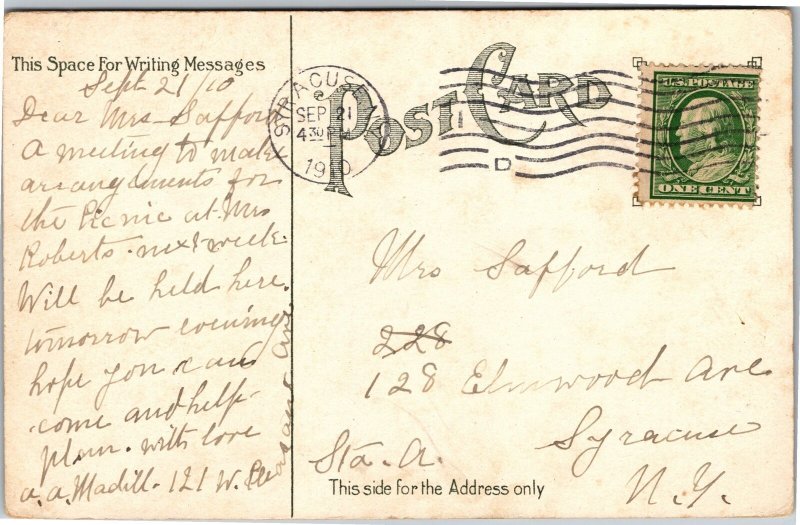 This Space For Writing Messages
Sept 21/10
Dear Mrs Safford
A meeting to make
arrangements for
the Picnic at Mrs
Roberts. next week
Will be held here.
tomorrow evening
hope you can
come and help
plan. with love
a. a. Madill. 121 W. Pleasant Ave
POST CARD
SYRACUSE
SEP 21
430 PM
1910
D
U.S. POSTAGE
ONE CENT
Mrs Safford
228
128 Elmwood Ave.
Syracuse
Sta. A.
N.Y.
This side for the Address only